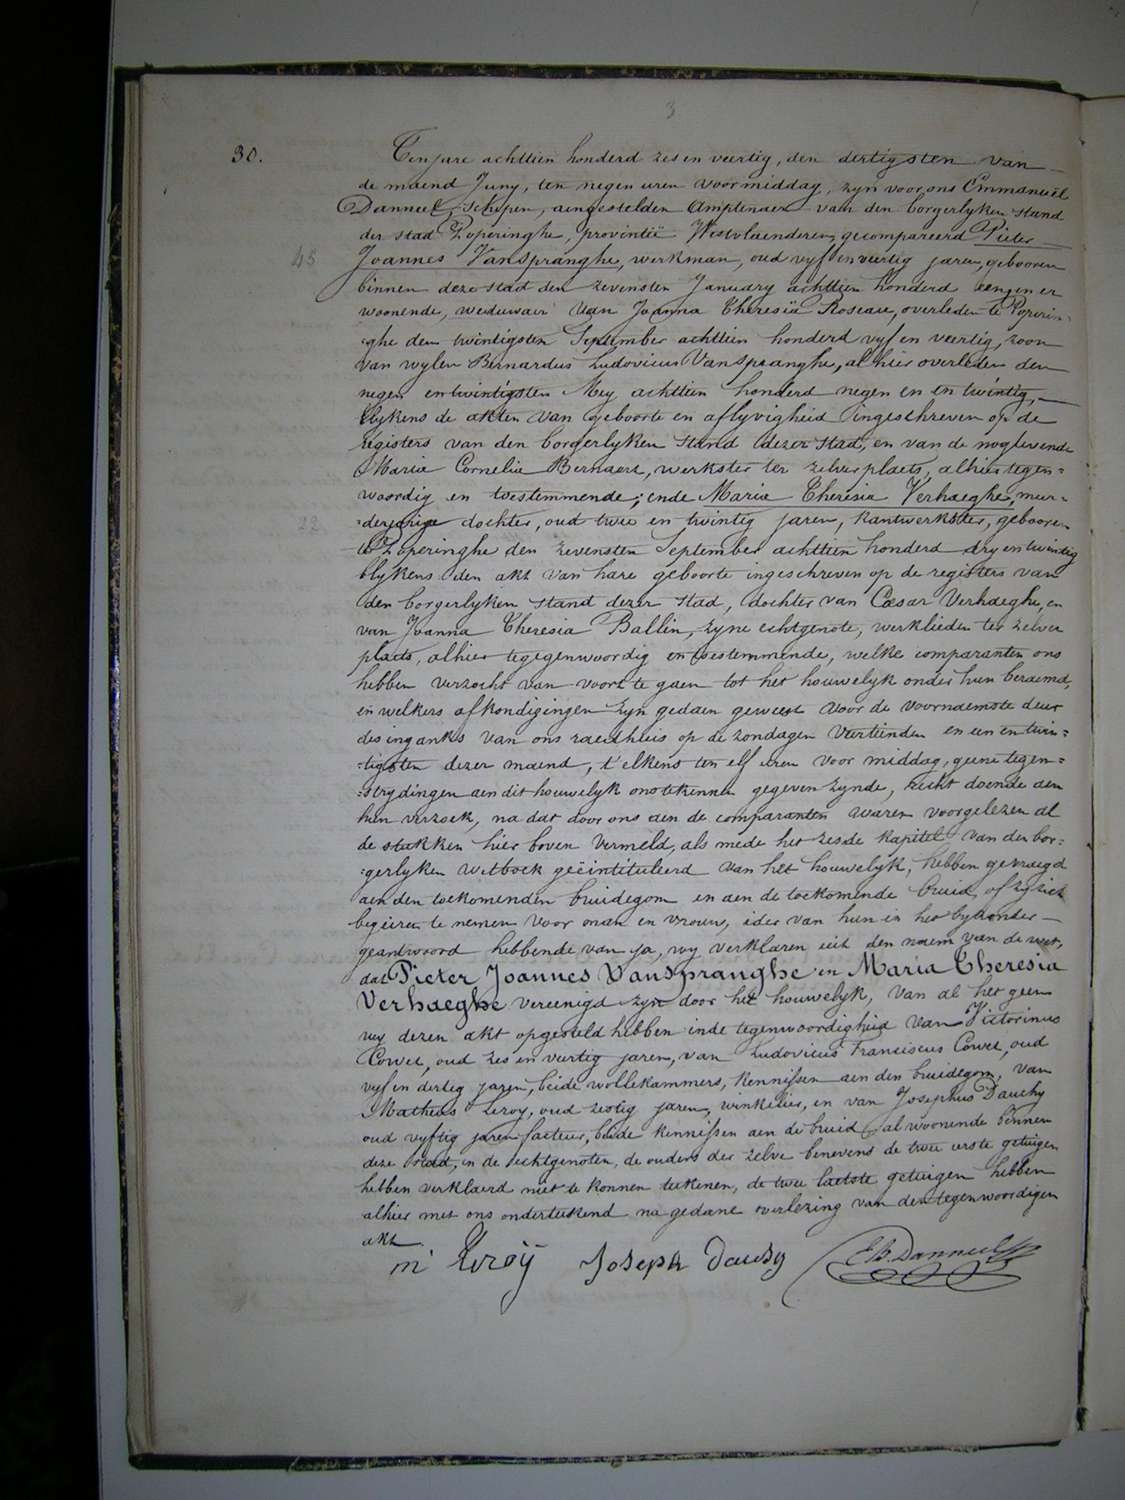 3
30.
Tenjare achttien honderd zes en veertig, den dertigsten van
de maend Juny, ten negen uren voormiddag, zyn voor ons Emmanuël
Danneel, schepen, aengestelden Amptenaer van den borgerlyken stand
der stad Poperinghe, provintië Westvlaenderen, gecompareerd Pieter
45
Joannes Vanspranghe, werkman, oud vyf en veertig jaren, gebooren
binnen deze stad den zevensten January achttien honderd een, en er
woonende, weduwair van Joanna Theresia Roseau, overleden te Poperin-
-ghe den twintigsten September achttien honderd vyf en veertig, zoon
van wylen Bernardus Ludovicus Vanspranghe, alhier overleden den
negen entwintigsten Mey achttien honderd negen en en twintig,
blykens de akten van geboorte en aflyvigheid ingeschreven op de
registers van den borgerlyken stand dezer stad, en van de noglevende
Maria Cornelia Bernaert, werkster ter zelver plaets, alhier tegen=
woordig en toestemmende; ende Maria Theresia Verhaeghe, meer=
22
=derjarige dochter, oud twee en twintig jaren, kantwerkster, gebooren
te Poperinghe den zevensten September achttien honderd dry en twintig
blykens den akt van hare geboorte ingeschreven op de registers van
den borgerlyken stand dezer stad, dochter van Cæsar Verhaeghe, en
van Joanna Theresia Ballin, zyne echtgenote, werklieden ter zelver
plaets, alhier tegegenwoordig en toestemmende, welke comparanten ons
hebben verzocht van voort te gaen tot het houwelyk onder hun beraemd,
en welkers afkondigingen zyn gedaen geweest voor de voornaemste deur
des inganks van ons raedhuis op de zondagen veertienden en een en twin=
=tigsten dezer maend, t'elkens ten elf uren voor middag, geene tegen=
=strydingen aen dit houwelyk ons tekennen gegeven zynde, recht doende aen
hun verzoek, na dat door ons aen de comparanten waren voorgelezen al
de stukken hier boven vermeld, als mede het zesde kapitel van den bor=
=gerlyken wetboek geëintituleerd van het houwelyk, hebben gevraegd
aen den toekomenden bruidegom en aen de toekomende bruid, of zy zich
begeeren te nemen voor man en vrouw, ider van hun in het byzonder
geandwoord hebbende van ja, wy verklaren uit den naem van de wet,
dat Pieter Joannes Vanspranghe en Maria Theresia
Verhaeghe vereenigd zyn door het houwelyk, van al het geen
wy dezen akt opgesteld hebben inde tegenwoordigheid van Victorinus
Cowet, oud zes en veertig jaren, van Ludovicus Franciscus Cowet, oud
vyf en dertig jaren, beide wollekammers, kennissen aen den bruidegom, van
Matheus Leroy, oud zestig jaren, winkelier, en van Josephus Dauchy
oud vyftig jaren facteur, beide kennissen aen de bruid, al woonende binnen
deze stad, en de echtgenoten, de ouders der zelve benevens de twee eerste getuigen
hebben verklaerd niet te konnen teekenen, de twee laetste getuigen hebben
alhier met ons onderteekend na gedane overlezing van den tegenwoordigen
akt.
m Leroÿ Joseph Dauchy E.B. Danneel